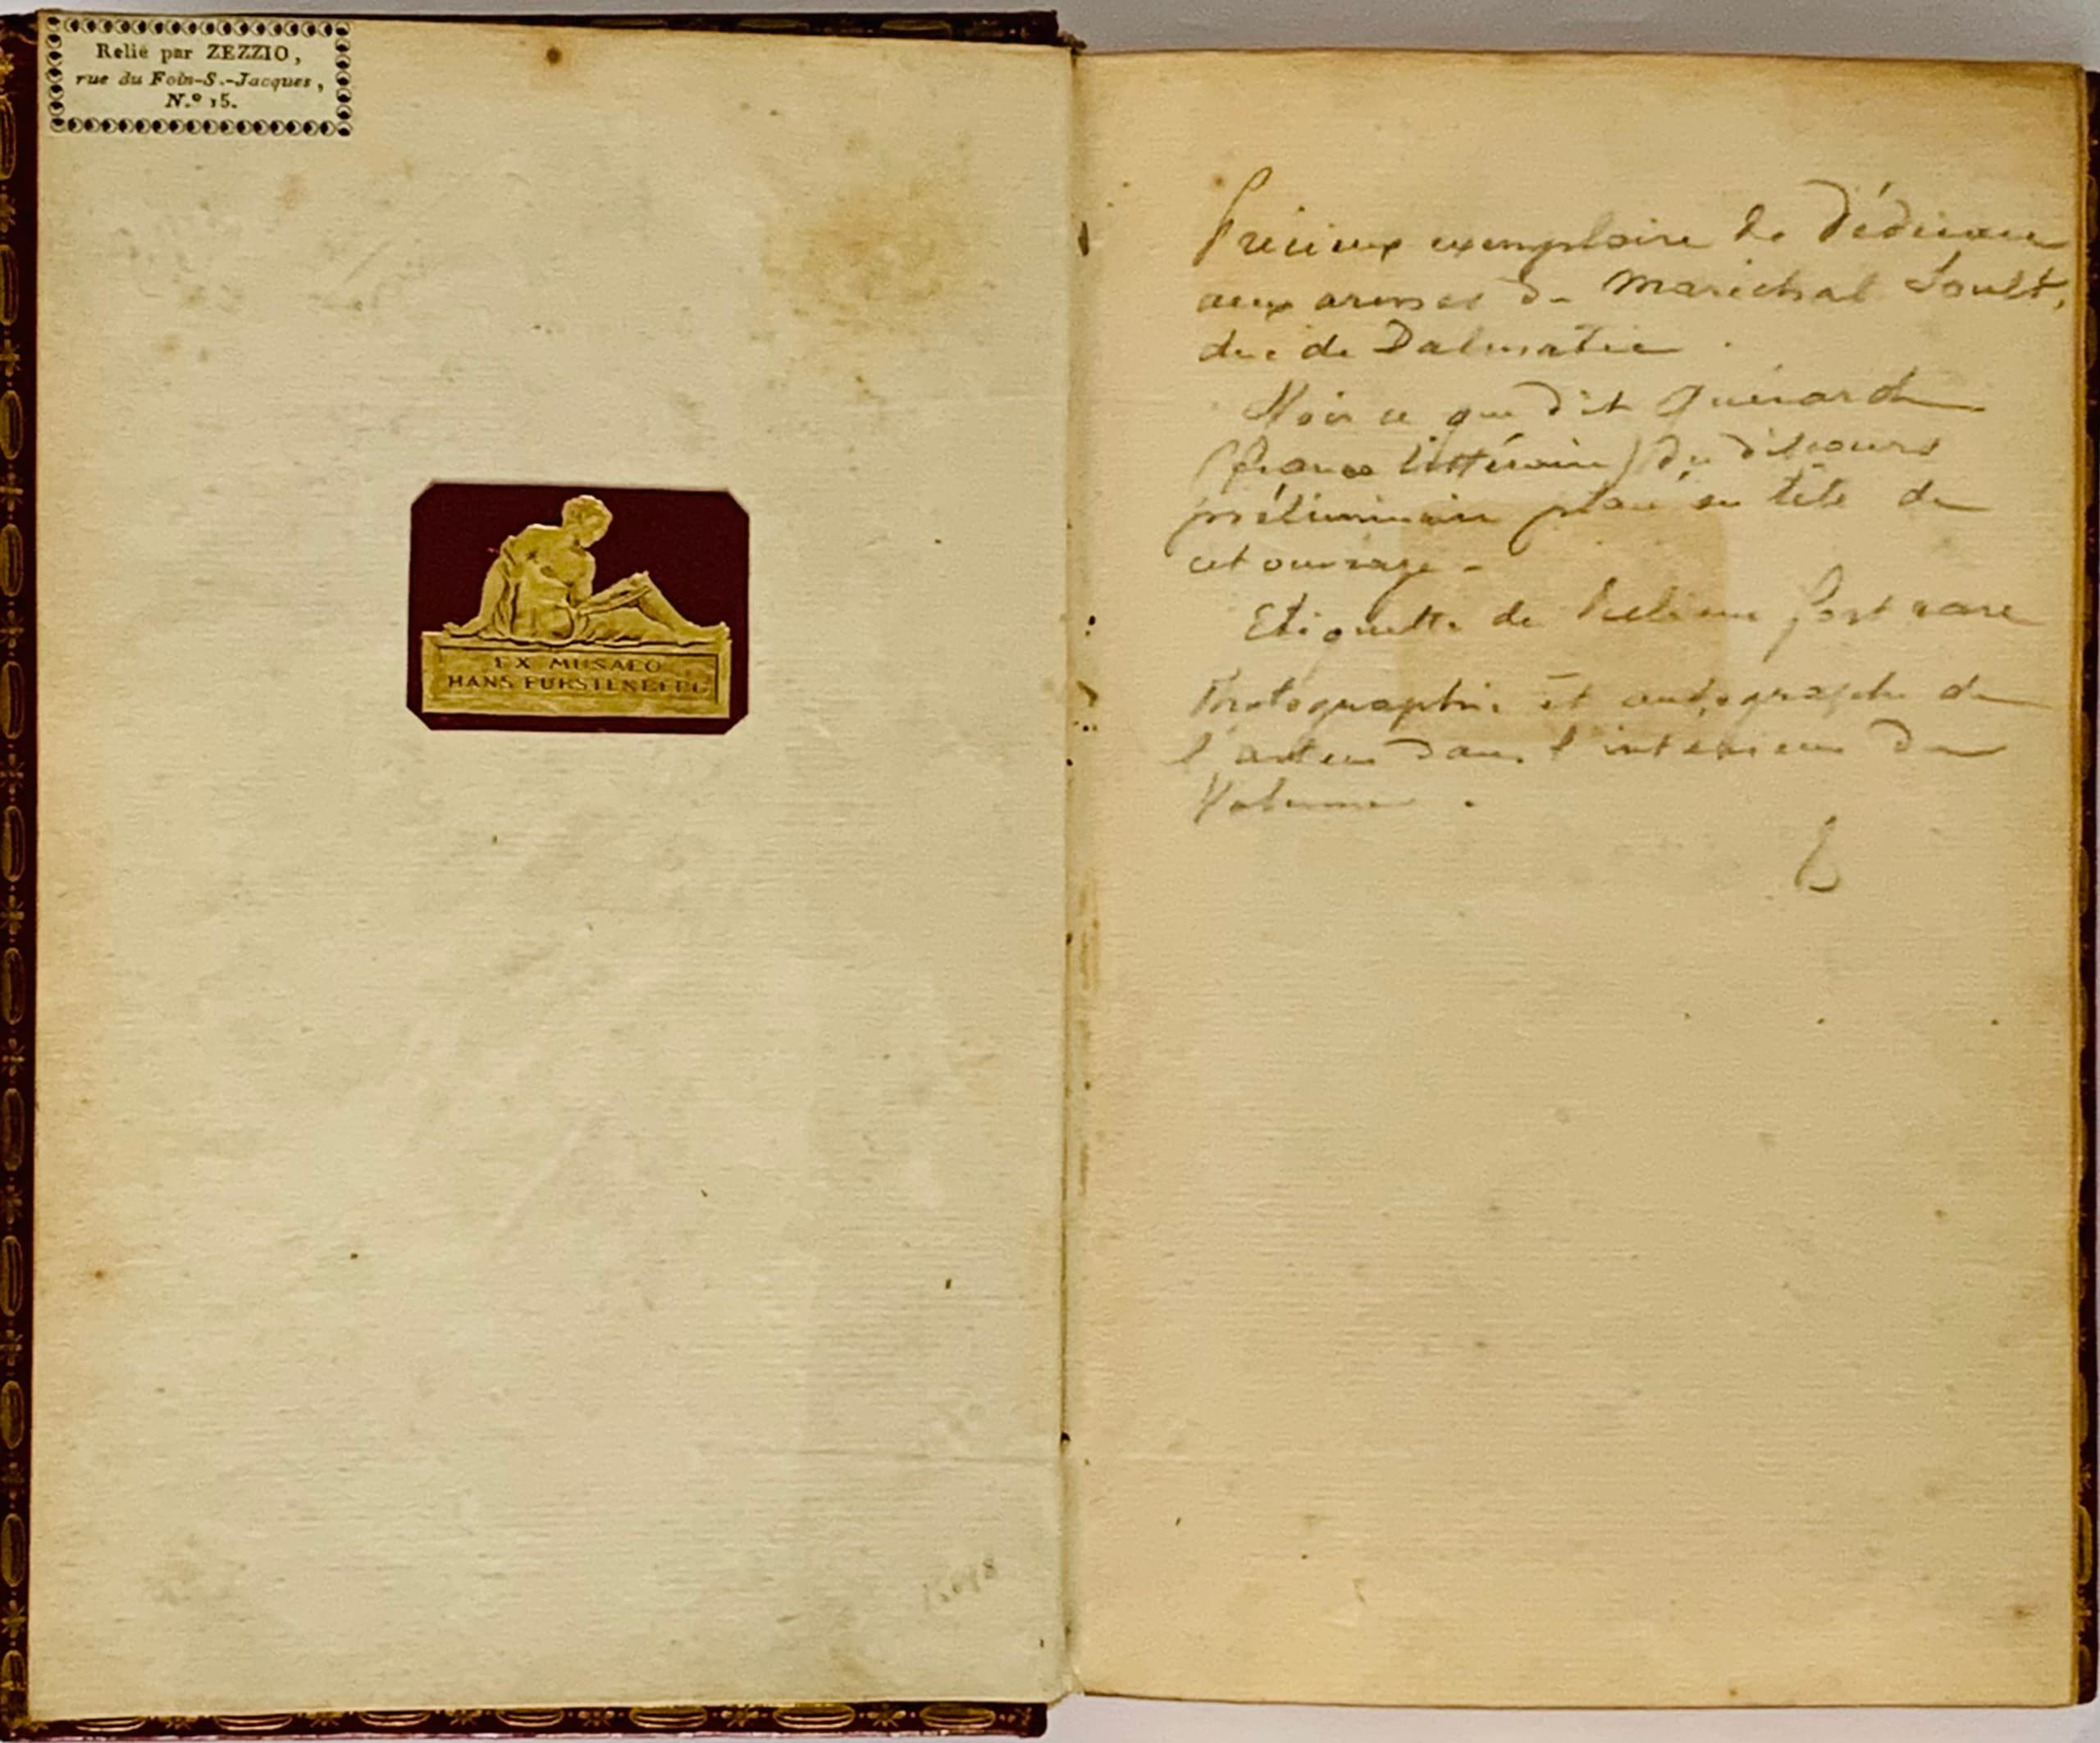 Relié par ZEZZIO,
rue du Foin-S.-Jacques,
N.º 15.
EX MUSAEO
HANS FURSTENBERG
Précieux exemplaire de dédicace
aux armes du Maréchal Soult,
duc de Dalmatie.
Voir ce que dit Quérard
(France littéraire) du discours
préliminaire placé en tête de
cet ouvrage.
Etiquette de Relieur fort rare
Photographie et autographe de
l'auteur dans l'intérieur du
Volume.